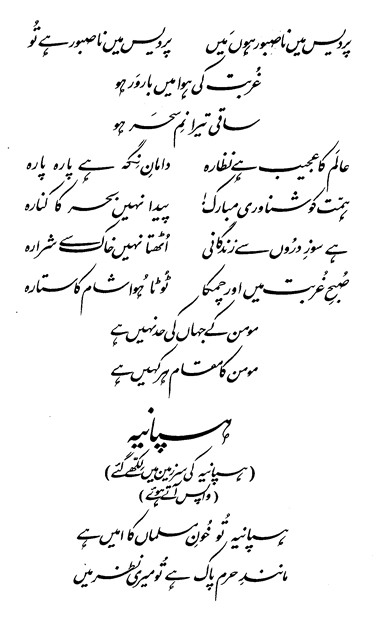 پردیس میں ناصبور ہوں مَیں پردیس میں ناصبور ہے تُو
غُربت کی ہوا میں بارور ہو
ساقی تیرا نمِ سحَر ہو
عالَم کا عجیب ہے نظارہ دامانِ نِگہ ہے پارہ پارہ
ہمّت کو شناوری مبارک! پیدا نہیں بحر کا کنارہ
ہے سوزِ درُوں سے زندگانی اُٹھتا نہیں خاک سے شرارہ
صُبحِ غُربت میں اور چمکا ٹُوٹا ہُوا شام کا ستارہ
مومن کے جہاں کی حد نہیں ہے
مومن کا مقام ہر کہیں ہے
ہسپانیہ
(ہسپانیہ کی سرزمین میں لکھے گئے)
(واپس آتے ہوئے)
ہسپانیہ تُو خُونِ مسلماں کا امیں ہے
مانندِ حرم پاک ہے تُو میری نظر میں